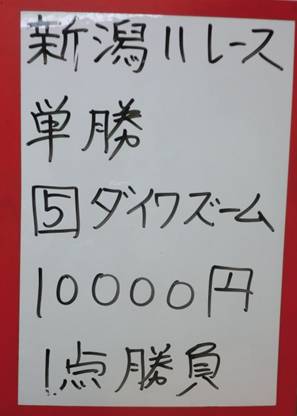 新潟11レース
単勝
5ダイワズーム
10000円
1点勝負